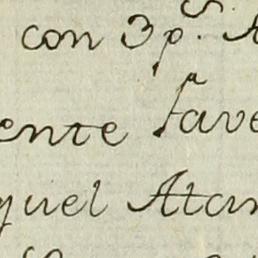 con 3 p.^s A
ente fave
quel Atan